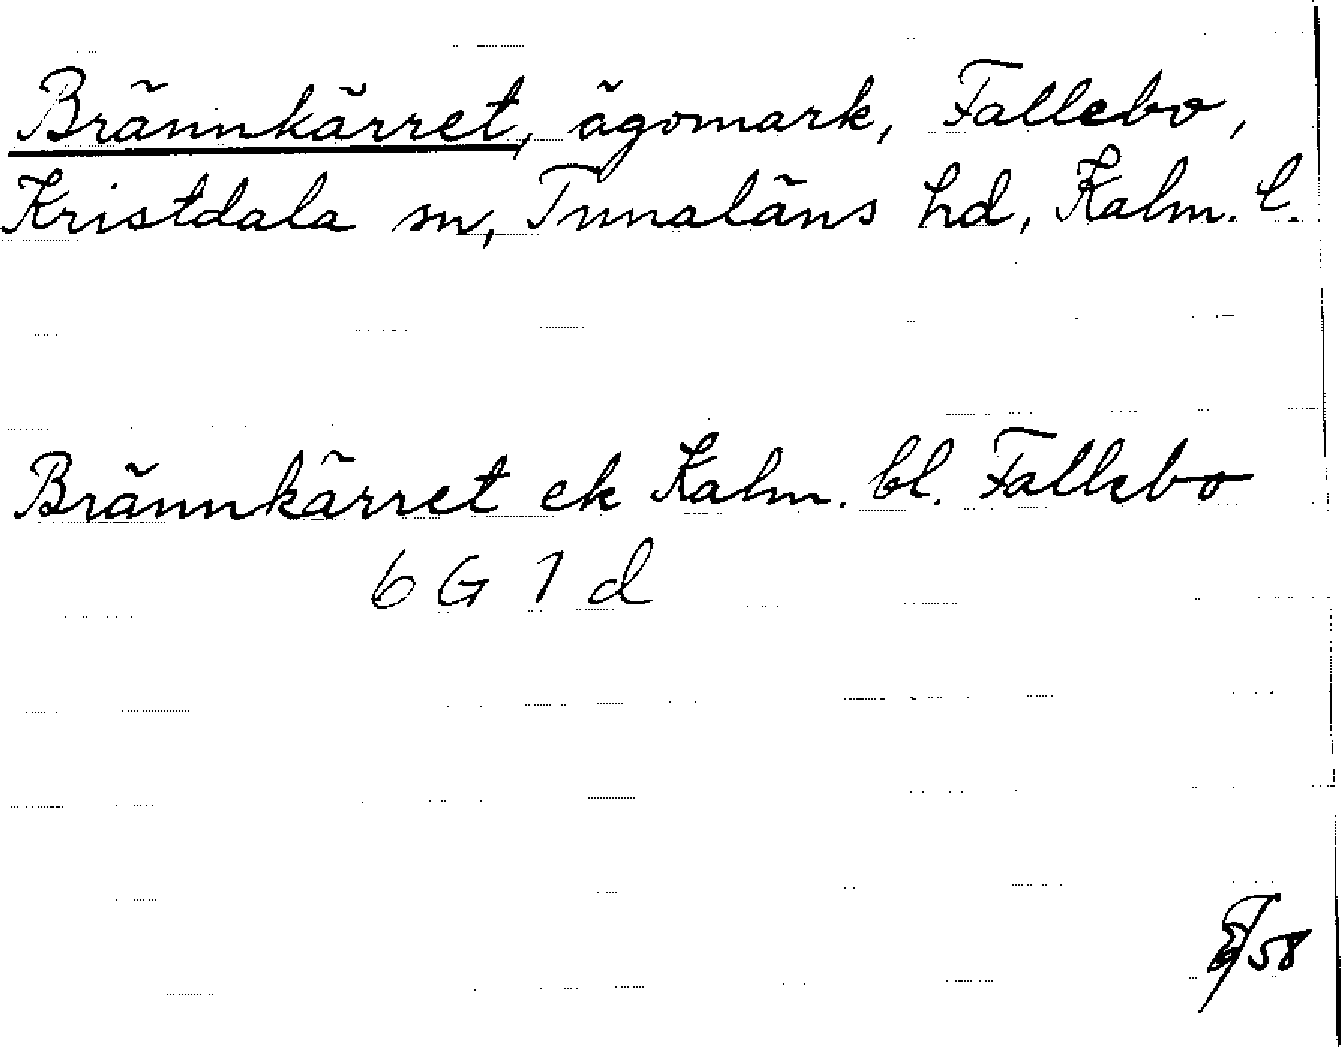 Brännkärret, ägomark, Fallebo,
Kristdala sn, Tunaläns hd, Kalm. l.
Brännkärret ek Kalm. bl. Fallebo
6 G 1 d
58